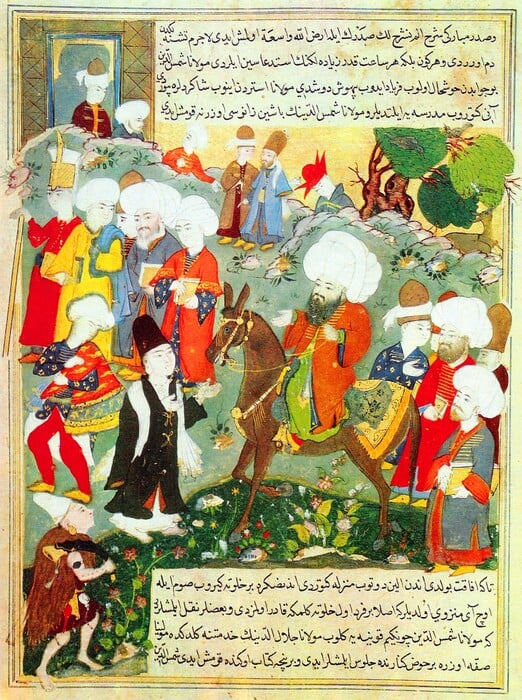 وصدر مباركی شرح الم نشرح لك صدرك ایله ارض الله واسعة اولمش ایدی لاجرم تشنه لكدن
دم اورردی وهركون بلكه هر ساعت زیاده لكنك استدعاسین ایلردی مولانا شمس الدین
بو جوابدن خوشحال اولوب فریاد ایدوب بیهوش دوشدی مولانا استردن اینوب شاكردلره بیوردی
آنی كتوروب مدرسه یه ایلتدیلر و مولانا شمس الدینك باشین زانوسی اوزرنه قومش ایدی
تا كه افاقت بولدی اندن الین دوتوب منزله كوتردی اندنصكره بر خلوته كیروب صوم ایله
اوچ آی منزوی اولدیلر كه اصلا بر فرد اول خلوته كلمكه قادر اولمزدی و بعضلر نقل ایلمشلردر
كه مولانا شمس الدین چونكیم قونیه یه كلوب مولانا جلال الدینك خدمتنه كلدكده مولانا
صفه اوزره بر حوض كنارنده جلوس ایلمشلر ایدی و برنیچه كتاب اوكنده قومش ایدی شمس الدین